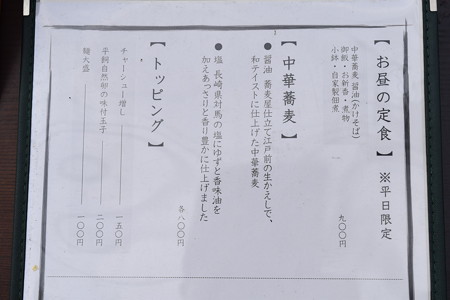 【お昼の定食】 ※平日限定
中華蕎麦 醤油(かけそば)
御飯・お新香・煮物
小鉢・自家製佃煮
九〇〇円
【中華蕎麦】
●醤油 蕎麦屋仕立て江戸前の生かえしで、
和テイストに仕上げた中華蕎麦
●塩 長崎県対馬の塩にゆずと香味油を
加えあっさりと香り豊かに仕上げました
各八〇〇円
【トッピング】
チャーシュー増し 一五〇円
平飼自然卵の味付玉子 二〇〇円
麺大盛 一〇〇円